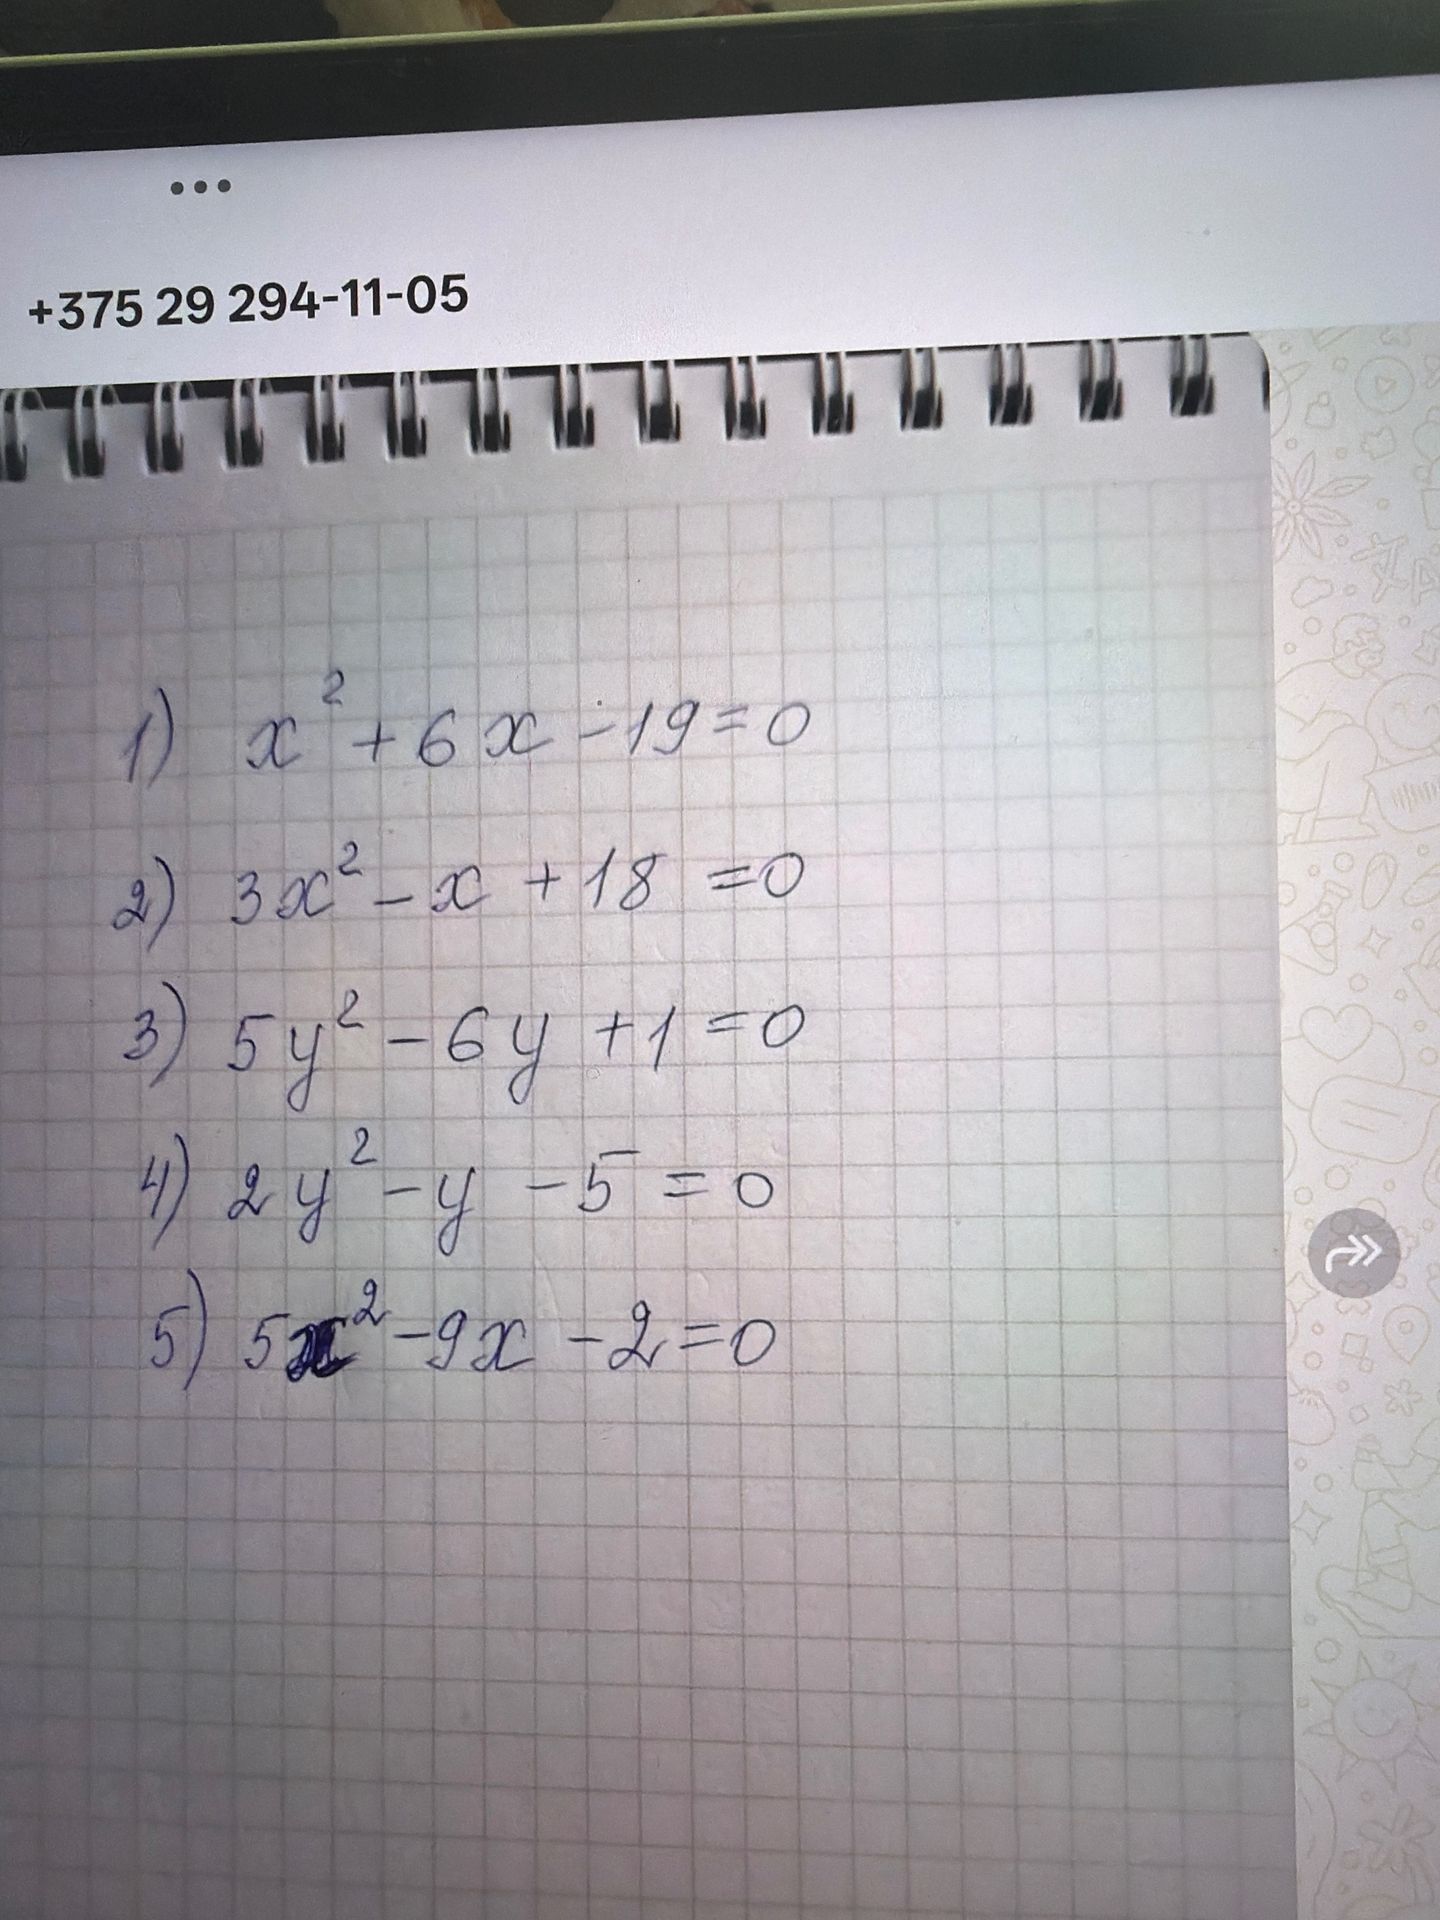 +375 29 294-11-05
1) x² + 6x - 19 = 0
2) 3x² - x + 18 = 0
3) 5y² - 6y + 1 = 0
4) 2y² - y - 5 = 0
5) 5x² - 9x - 2 = 0